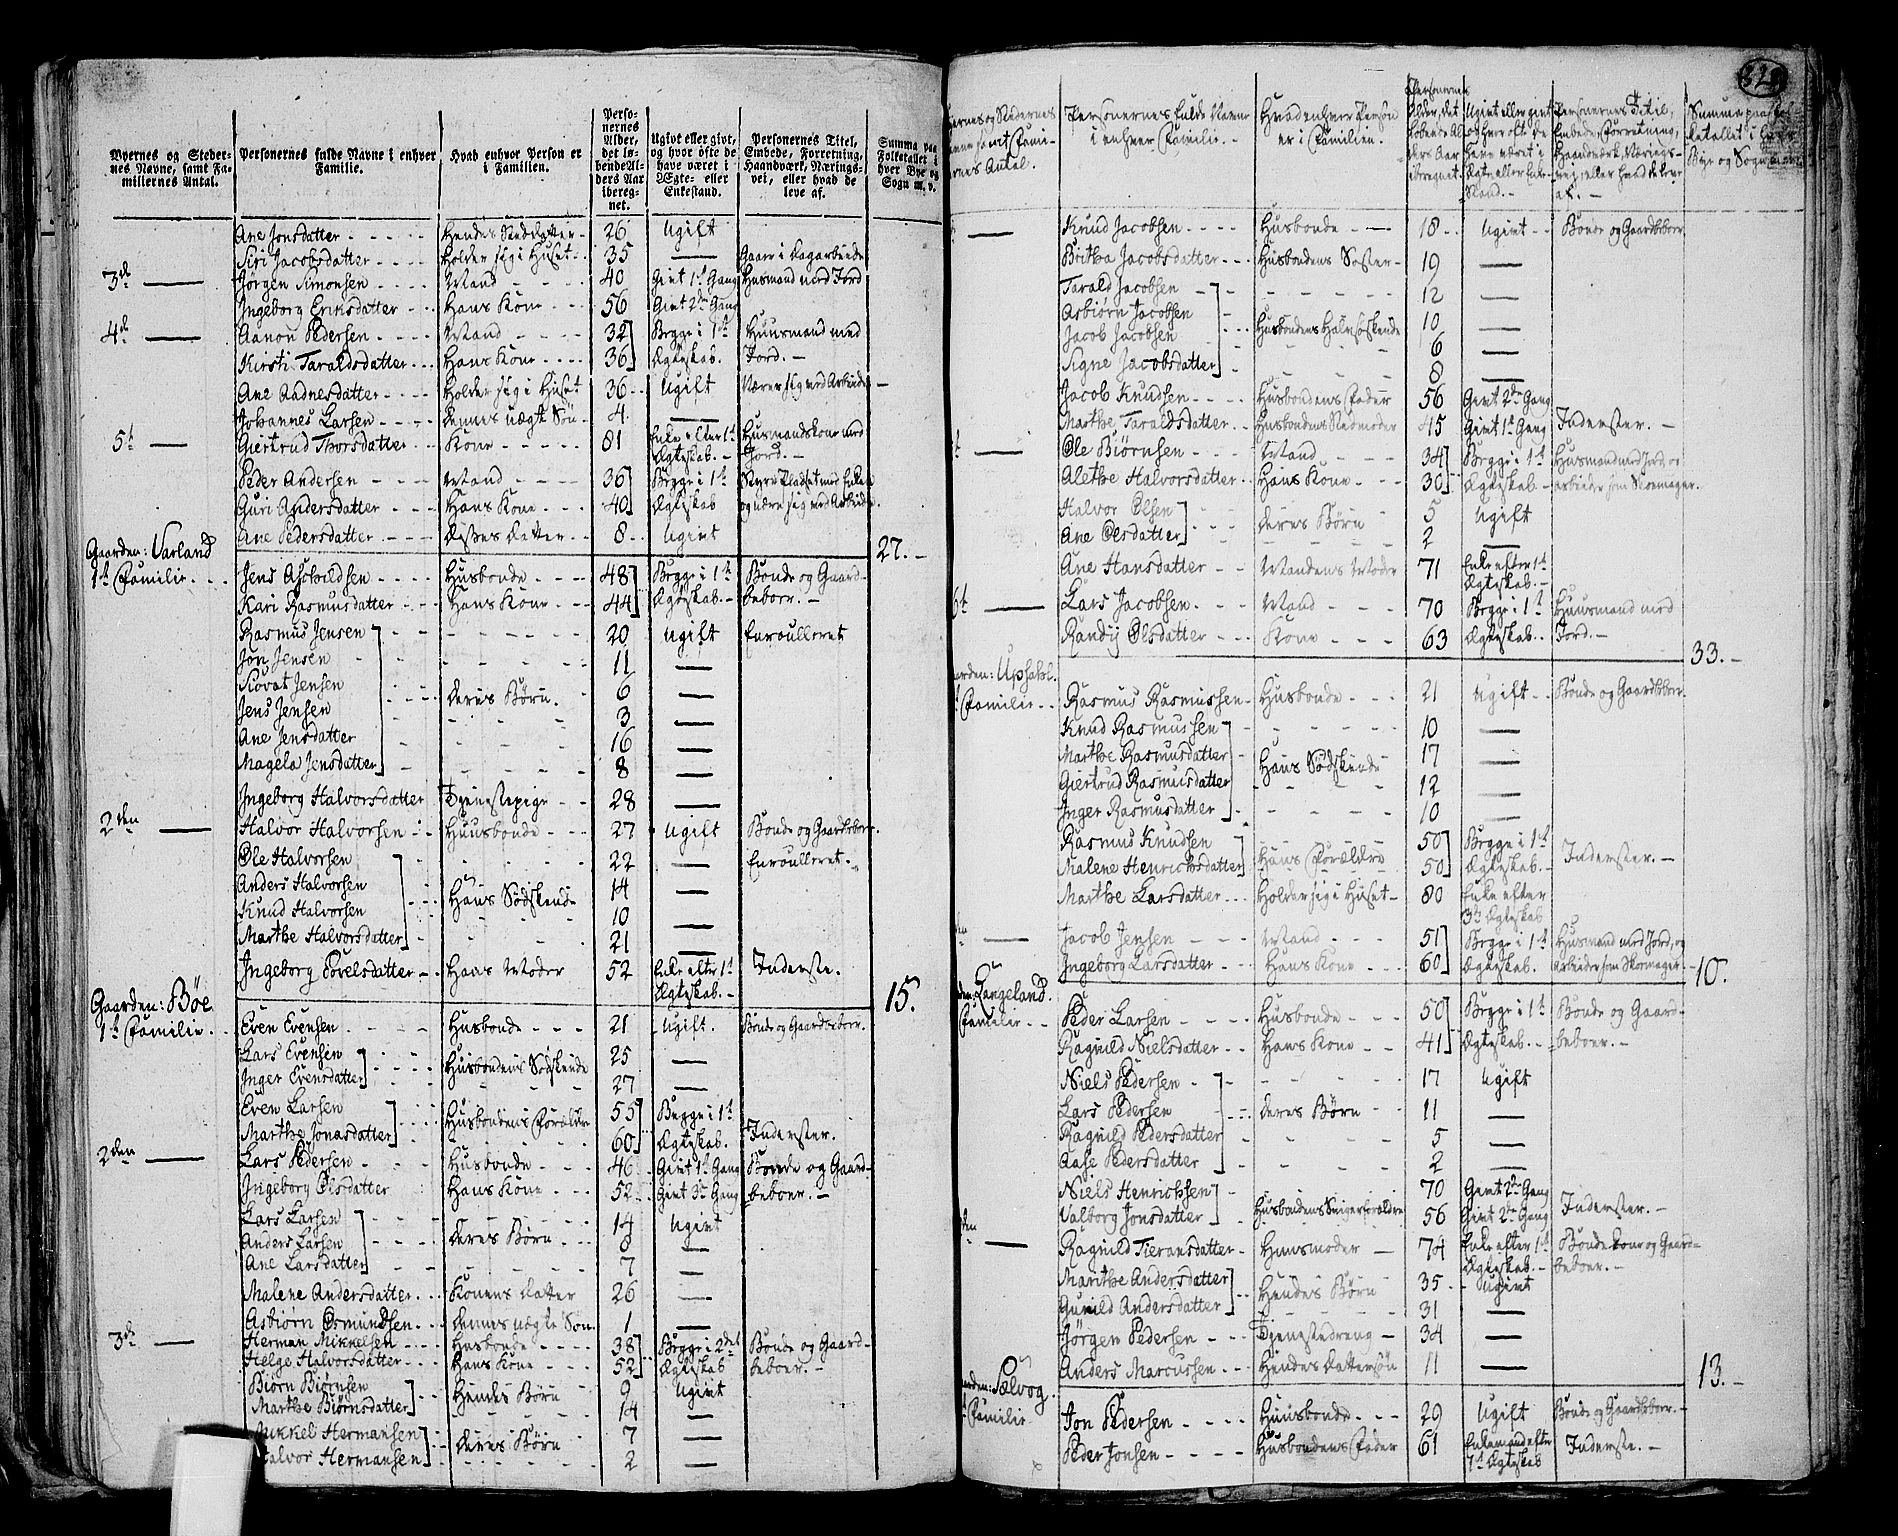 Byernes og Steder-
nes Navne, samt Fa-
miliernes Antal.
Personernes fulde Navne i enhver
Familie.
Hvad enhver Person er
i Familien.
Perso-
nernes
Alder,
det lø-
bende Al-
ders Aar
ibereg-
net.
Ugivt eller givt,
og hvor ofte de
have været i
Ægte- eller
Enkestand.
Personernes Titel,
Embede, Forretning,
Haandværk, Nærings-
vei, eller hvad de
leve af.
Summa paa
Folketallet i
hver Bye og
Sogn m. v.
Ane Jonsdatter Hendes Sted datter 26 Ugift
Siri Jacobsdatter Holder sig i Huset 35 — Gaaer i Dagarbeide
3de — Jørgen Simonsen Mand 40 Givt 1st Gang Husmand med Jord
Ingeborg Eriksdatter Hans Kone 56 Givt 2den Gang
4de — Aanon Pedersen Mand 32 Begge i 1st Huusmand med
Kirsti Taraldsdatter Hans Kone 36 Ægteskab. Jord.
Ane Aadnesdatter Holder sig i Huset 36 Ugift Nærer sig med Arbeide
Johannes Larsen Dennes uægte Søn 4 —
5te — Giertrud Thorsdatter Kone 81 Enke efter 1st Husmandskone med
Ægteskab. Jord.
Peder Andersen Mand 36 Begge i 1st Styre Pladset med Enken
Guri Andersdatter Hans Kone 40 Ægteskab og nære sig med Arbeide
Ane Pedersdatter Disses Datter 8 Ugivt
27.
Gaarden: Varland
1st Familie Jens Asgoldsen Husbonde 48 Begge i 1st Bonde og Gaard-
Kari Rasmusdatter Hans Kone 44 Ægteskab. beboer.
Rasmus Jensen 20 Ugift Enroulleret
Jon Jensen 11 —
Siovat Jensen 6 —
Jens Jensen Deres Børn. 3 —
Ane Jensdatter 16 —
Magela Jensdatter 8 —
Ingeborg Halvorsdatter Tjenestepige 28 —
2den — Halvor Halvorsen Huusbonde 27 Ugift Bonde og Gaardbeboer.
Ole Halvorsen 22 — Enroulleret.
Anders Halvorsen Hans Sødskende 14 —
Knud Halvorsen 10 —
Marthe Halvorsdatter 21 —
Ingeborg Povelsdatter Hans Moder 52 Enke efter 1st Inderste.
Ægteskab.
15.
Gaarden: Böe
1st Familie Even Evensen Husbonde 21 Ugift. Bonde og Gaardbeboer.
Lars Evensen Husbondens Sødskende 25 —
Inger Evensdatter 27 —
Even Larsen Husbondens Forældre 55 Begge i 1st
Marthe Jonasdatter 60 Ægteskab. Inderster.
2den — Lars Pedersen Husbonde 46 Givt 1st Gang Bonde og Gaard-
Ingeborg Olsdatter Hans Kone 52 Givt 3de Gang beboer.
Lars Larsen 14 Ugivt
Anders Larsen Deres Børn —
Ane Larsdatter 7 —
Malene Andersdatter Konens Datter 26 —
Asbiørn Osmundsen Dennes uægte Søn. 1 —
3de — Herman Mikkelsen Husbonde 38 Begge i 2det Bonde og Gaard-
Helge Halvorsdatter Hans Kone 52 Ægteskab beboer.
Biørn Biørnsen Hendes Børn 9 Ugivt
Marthe Biørnsdatter 14 —
Mikkel Hermansen Deres Børn 7 —
Halvor Hermansen 2 —
Personernes fulde Navne
i enhver Familie.
Hvad enhver Person
er i Familien.
Knud Jacobsen Husbonde 18 Ugivt Bonde og Gaardbeboer
Britha Jacobsdatter Husbondens Søster 19 —
Tarald Jacobsen 12 —
Asbiørn Jacobsen Husbondens Halvsøskende 10 —
Jacob Jacobsen 6 —
Signe Jacobsdatter 8 —
Jacob Knudsen Husbondens Fader 56 Givt 2den Gang
Marthe Taraldsdatter Husbondens Stedmoder 45 Givt 1st Gang Inderster.
— Ole Biørnsen Mand 34 Begge i 1st Husmand med Jord, og
Alethe Halvorsdatter Hans Kone 30 Ægteskab arbeider som Skoemager.
Halvor Olsen Deres Børn 5 Ugift
Ane Olsdatter 2 —
Ane Hansdatter Mandens Moder 71 Enke efter 1st
Ægteskab.
6t — Lars Jacobsen Mand 70 Begge i 1st Huusmand med
Randij Olsdatter Kone 63 Ægteskab. Jord.
33.
arden: Upsahl.
Familie Rasmus Rasmussen Husbonde 21 Ugift Bonde og Gaardbeboer
Knud Rasmussen 10 —
Marthe Rasmusdatter Hans Sødskende 17 —
Giertrud Rasmusdatter 12 —
Inger Rasmusdatter 10 —
Rasmus Knudsen Hans Forældre 50 Begge i 1st
Malene Henrichsdatter 50 Ægteskab. Inderster.
Marthe Larsdatter Holder sig i Huset 80 Enke efter
3de Ægteskab
— Jacob Jensen Mand 51 Begge i 1st Husmand med Jord, og
Ingeborg Larsdatter Hans Kone 60 Ægteskab. Arbeider som Skoemager.
10.
den: Langeland.
Familie Peder Larsen Husbonde 50 Begge i 1st Bonde og Gaard-
Ragnild Nielsdatter Hans Kone 41 Ægteskab. beboer.
Niels Pedersen 17 Ugift
Lars Pedersen Deres Børn 11 —
Ragnild Pedersdatter 5 —
Aase Pedersdatter 2 —
Niels Henrichsen 70 Givt 2den Gang
Valborg Jonsdatter Husbondens Svigerforældre 56 Givt 2den Gang Inderster.
den — Ragnild Tieransdatter Huusmoder 74 Enke efter 1st Bonde Kone og Gaard-
Ægteskab. beboer.
Marithe Andersdatter Hendes Børn 35 Ugivt
Gunild Andersdatter 31 —
Jørgen Pedersen Tjenestedreng 34 —
Anders Marcussen Hendes Dattersøn 11 —
13.
den: Sælvog.
Familie Jon Pedersen Huusbonde 29 Ugift Bonde og Gaardbeboer.
Peder Jonsen Husbondens Fader 61 Enkemand efter Inderste.
1st Ægteskab